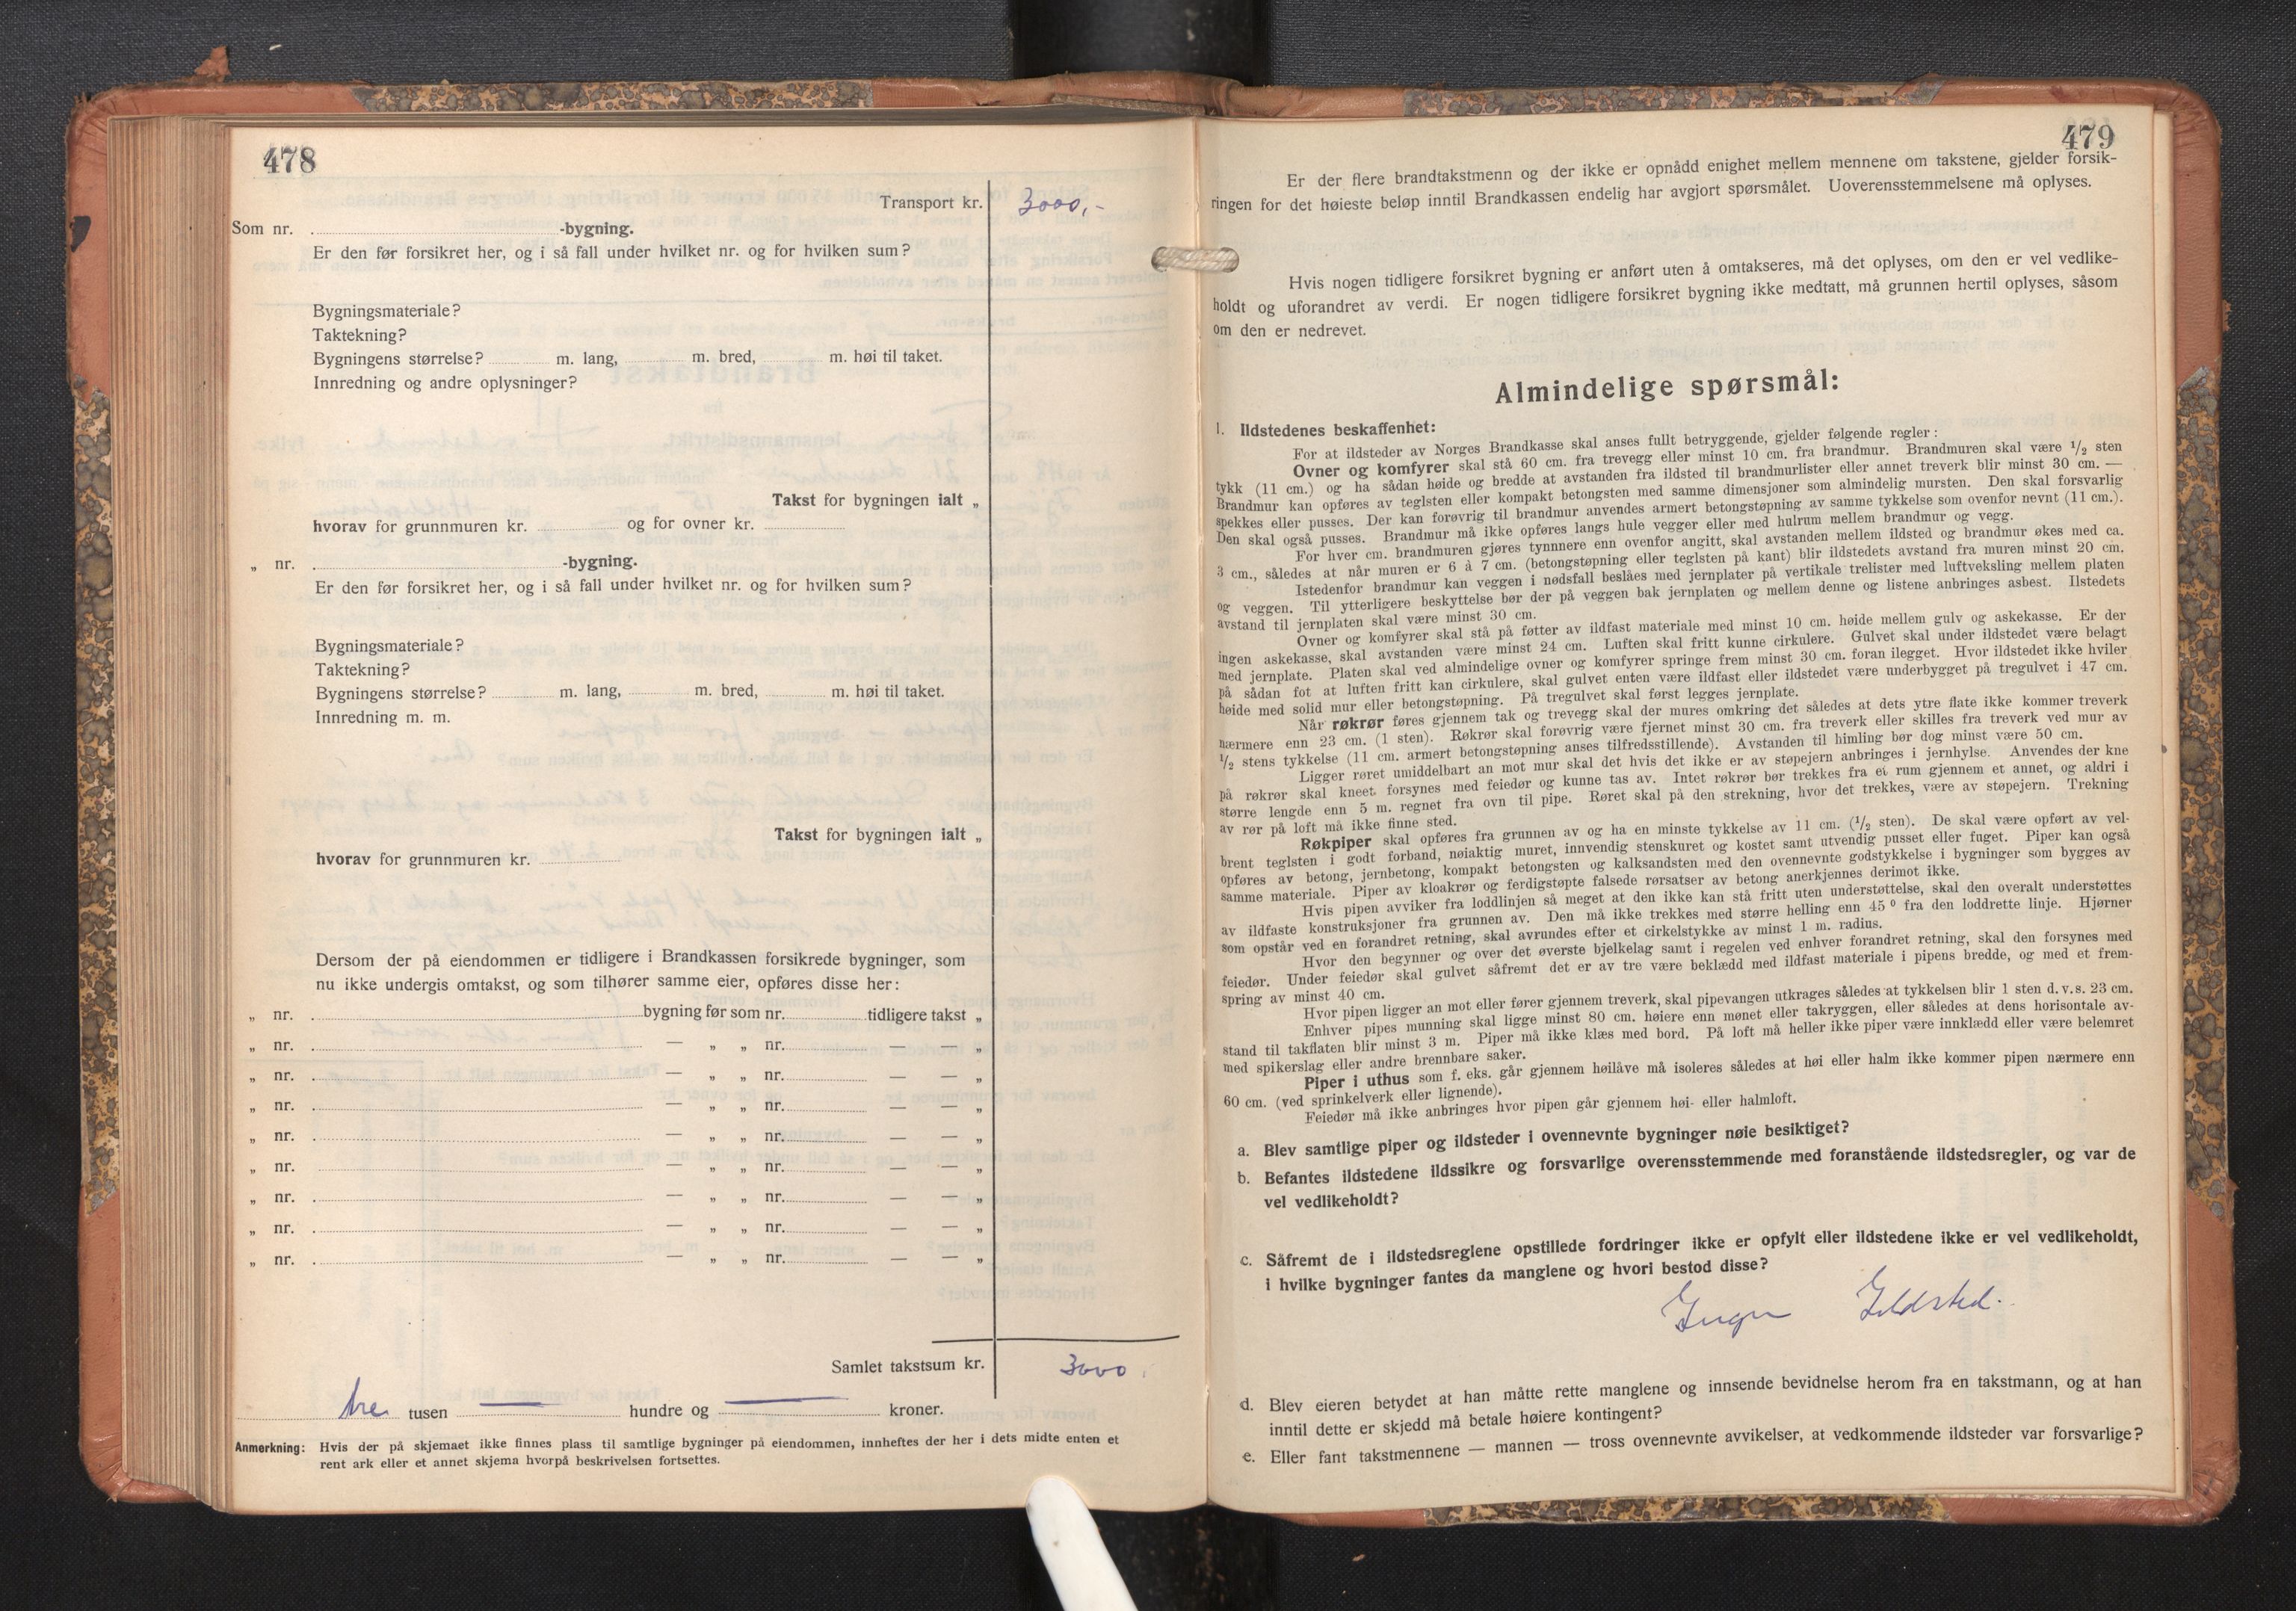 478
Transport kr. 3000,-
Som nr. -bygning.
Er den før forsikret her, og i så fall under hvilket nr. og for hvilken sum?
Bygningsmateriale?
Taktekning?
Bygningens størrelse? m. lang, m. bred, m. høi til taket.
Innredning og andre oplysninger?
Takst for bygningen ialt „
hvorav for grunnmuren kr. og for ovner kr.
„ nr. -bygning.
Er den før forsikret her, og i så fall under hvilket nr. og for hvilken sum?
Bygningsmateriale?
Taktekning?
Bygningens størrelse? m. lang, m. bred, m. høi til taket.
Innredning m. m.
Takst for bygningen ialt „
hvorav for grunnmuren kr.
Dersom der på eiendommen er tidligere i Brandkassen forsikrede bygninger, som
nu ikke undergis omtakst, og som tilhører samme eier, opføres disse her:
„ nr. bygning før som nr. tidligere takst „
„ nr. — „ „ nr. — — „
„ nr. — „ „ nr. — — „
„ nr. — „ „ nr. — — „
„ nr. — „ „ nr. — — „
„ nr. — „ „ nr. — — „
„ nr. — „ „ nr. — — „
„ nr. — „ „ nr. — — „
„ nr. — „ „ nr. — — „
Samlet takstsum kr. 3000
tre tusen — hundre og — kroner.
Anmerkning: Hvis der på skjemaet ikke finnes plass til samtlige bygninger på eiendommen, innheftes der her i dets midte enten et
rent ark eller et annet skjema hvorpå beskrivelsen fortsettes.
479
Er der flere brandtakstmenn og der ikke er opnådd enighet mellem mennene om takstene, gjelder forsik-
ringen for det høieste beløp inntil Brandkassen endelig har avgjort spørsmålet. Uoverensstemmelsene må oplyses.
Hvis nogen tidligere forsikret bygning er anført uten å omtakseres, må det oplyses, om den er vel vedlike-
holdt og uforandret av verdi. Er nogen tidligere forsikret bygning ikke medtatt, må grunnen hertil oplyses, såsom
om den er nedrevet.
Almindelige spørsmål:
1. Ildstedenes beskaffenhet:
For at ildsteder av Norges Brandkasse skal anses fullt betryggende, gjelder følgende regler:
Ovner og komfyrer skal stå 60 cm. fra trevegg eller minst 10 cm. fra brandmur. Brandmuren skal være 1/2 sten
tykk (11 cm.) og ha sådan høide og bredde at avstanden fra ildsted til brandmurlister eller annet treverk blir minst 30 cm. —
Brandmur kan opføres av teglsten eller kompakt betongsten med samme dimensjoner som almindelig mursten. Den skal forsvarlig
spekkes eller pusses. Der kan forøvrig til brandmur anvendes armert betongstøpning av samme tykkelse som ovenfor nevnt (11 cm.).
Den skal også pusses. Brandmur må ikke opføres langs hule vegger eller med hulrum mellem brandmur og vegg.
For hver cm. brandmuren gjøres tynnnere enn ovenfor angitt, skal avstanden mellem ildsted og brandmur økes med ca.
3 cm., således at når muren er 6 à 7 cm. (betongstøpning eller teglsten på kant) blir ildstedets avstand fra muren minst 20 cm.
Istedenfor brandmur kan veggen i nødsfall beslåes med jernplater på vertikale trelister med luftveksling mellem platen
og veggen. Til ytterligere beskyttelse bør der på veggen bak jernplaten og mellem denne og listene anbringes asbest. Ilstedets
avstand til jernplaten skal være minst 30 cm.
Ovner og komfyrer skal stå på føtter av ildfast materiale med minst 10 cm. høide mellem gulv og askekasse. Er der
ingen askekasse, skal avstanden være minst 24 cm. Luften skal fritt kunne cirkulere. Gulvet skal under ildstedet være belagt
med jernplate. Platen skal ved almindelige ovner og komfyrer springe frem minst 30 cm. foran ilegget. Hvor ildstedet ikke hviler
på sådan fot at luften fritt kan cirkulere, skal gulvet enten være ildfast eller ildstedet være underbygget på tregulvet i 47 cm.
høide med solid mur eller betongstøpning. På tregulvet skal først legges jernplate.
Når røkrør føres gjennem tak og trevegg skal der mures omkring det således at dets ytre flate ikke kommer treverk
nærmere enn 23 cm. (1 sten). Røkrør skal forøvrig være fjernet minst 30 cm. fra treverk eller skilles fra treverk ved mur av
1/2 stens tykkelse (11 cm. armert betongstøpning anses tilfredsstillende). Avstanden til himling bør dog minst være 50 cm.
Ligger røret umiddelbart an mot mur skal det hvis det ikke er av støpejern anbringes i jernhylse. Anvendes der kne
på røkrør skal kneet forsynes med feiedør og kunne tas av. Intet røkrør bør trekkes fra et rum gjennem et annet, og aldri i
større lengde enn 5 m. regnet fra ovn til pipe. Røret skal på den strekning, hvor det trekkes, være av støpejern. Trekning
av rør på loft må ikke finne sted.
Røkpiper skal opføres fra grunnen av og ha en minste tykkelse av 11 cm. (1/2 sten). De skal være opført av vel-
brent teglsten i godt forband, nøiaktig muret, innvendig stenskuret og kostet samt utvendig pusset eller fuget. Piper kan også
opføres av betong, jernbetong, kompakt betongsten og kalksandsten med den ovennevnte godstykkelse i bygninger som bygges av
samme materiale. Piper av kloakrør og ferdigstøpte falsede rørsatser av betong anerkjennes derimot ikke.
Hvis pipen avviker fra loddlinjen så meget at den ikke kan stå fritt uten understøttelse, skal den overalt understøttes
av ildfaste konstruksjoner fra grunnen av. Den må ikke trekkes med større helling enn 45° fra den loddrette linje. Hjørner
som opstår ved en forandret retning, skal avrundes efter et cirkelstykke av minst 1 m. radius.
Hvor den begynner og over det øverste bjelkelag samt i regelen ved enhver forandret retning, skal den forsynes med
feiedør. Under feiedør skal gulvet såfremt det er av tre være beklædd med ildfast materiale i pipens bredde, og med et frem-
spring av minst 40 cm.
Hvor pipen ligger an mot eller fører gjennem treverk, skal pipevangen utkrages således at tykkelsen blir 1 sten d.v.s. 23 cm.
Enhver pipes munning skal ligge minst 80 cm. høiere enn mønet eller takryggen, eller således at dens horisontale av-
stand til takflaten blir minst 3 m. Piper må ikke klæs med bord. På loft må heller ikke piper være innklædd eller være belemret
med spikerslag eller andre brennbare saker.
Piper i uthus som f. eks. går gjennem høilåve må isoleres således at høi eller halm ikke kommer pipen nærmere enn
60 cm. (ved sprinkelverk eller lignende).
Feiedør må ikke anbringes hvor pipen går gjennem høi- eller halmloft.
a. Blev samtlige piper og ildsteder i ovennevnte bygninger nøie besiktiget?
b. Befantes ildstedene ildssikre og forsvarlige overensstemmende med foranstående ildstedsregler, og var de
vel vedlikeholdt?
c. Såfremt de i ildstedsreglene opstillede fordringer ikke er opfylt eller ildstedene ikke er vel vedlikeholdt,
i hvilke bygninger fantes da manglene og hvori bestod disse?
Ingen Ildsted.
d. Blev eieren betydet at han måtte rette manglene og innsende bevidnelse herom fra en takstmann, og at han
inntil dette er skjedd må betale høiere kontingent?
e. Eller fant takstmennene — mannen — tross ovennevnte avvikelser, at vedkommende ildsteder var forsvarlige?